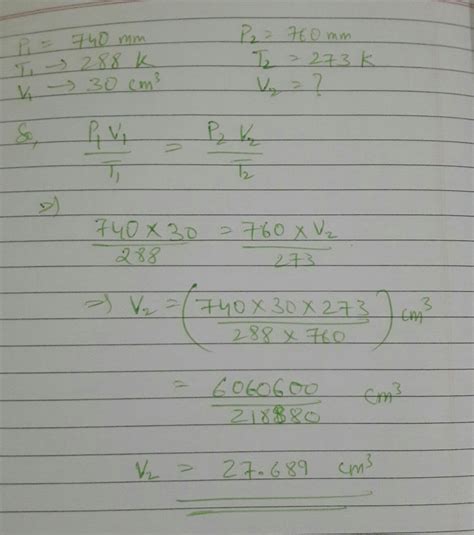 P₁ = 740 mm P₂ = 760 mm
T₁ → 288 K T₂ = 273 K
V₁ → 30 cm³ V₂ = ?
So, P₁ V₁ / T₁ = P₂ V₂ / T₂
⇒)
740 × 30 / 288 = 760 × V₂ / 273
⇒) V₂ = (740 × 30 × 273 / 288 × 760) cm³
= 6060600 / 218880 cm³
V₂ = 27.689 cm³